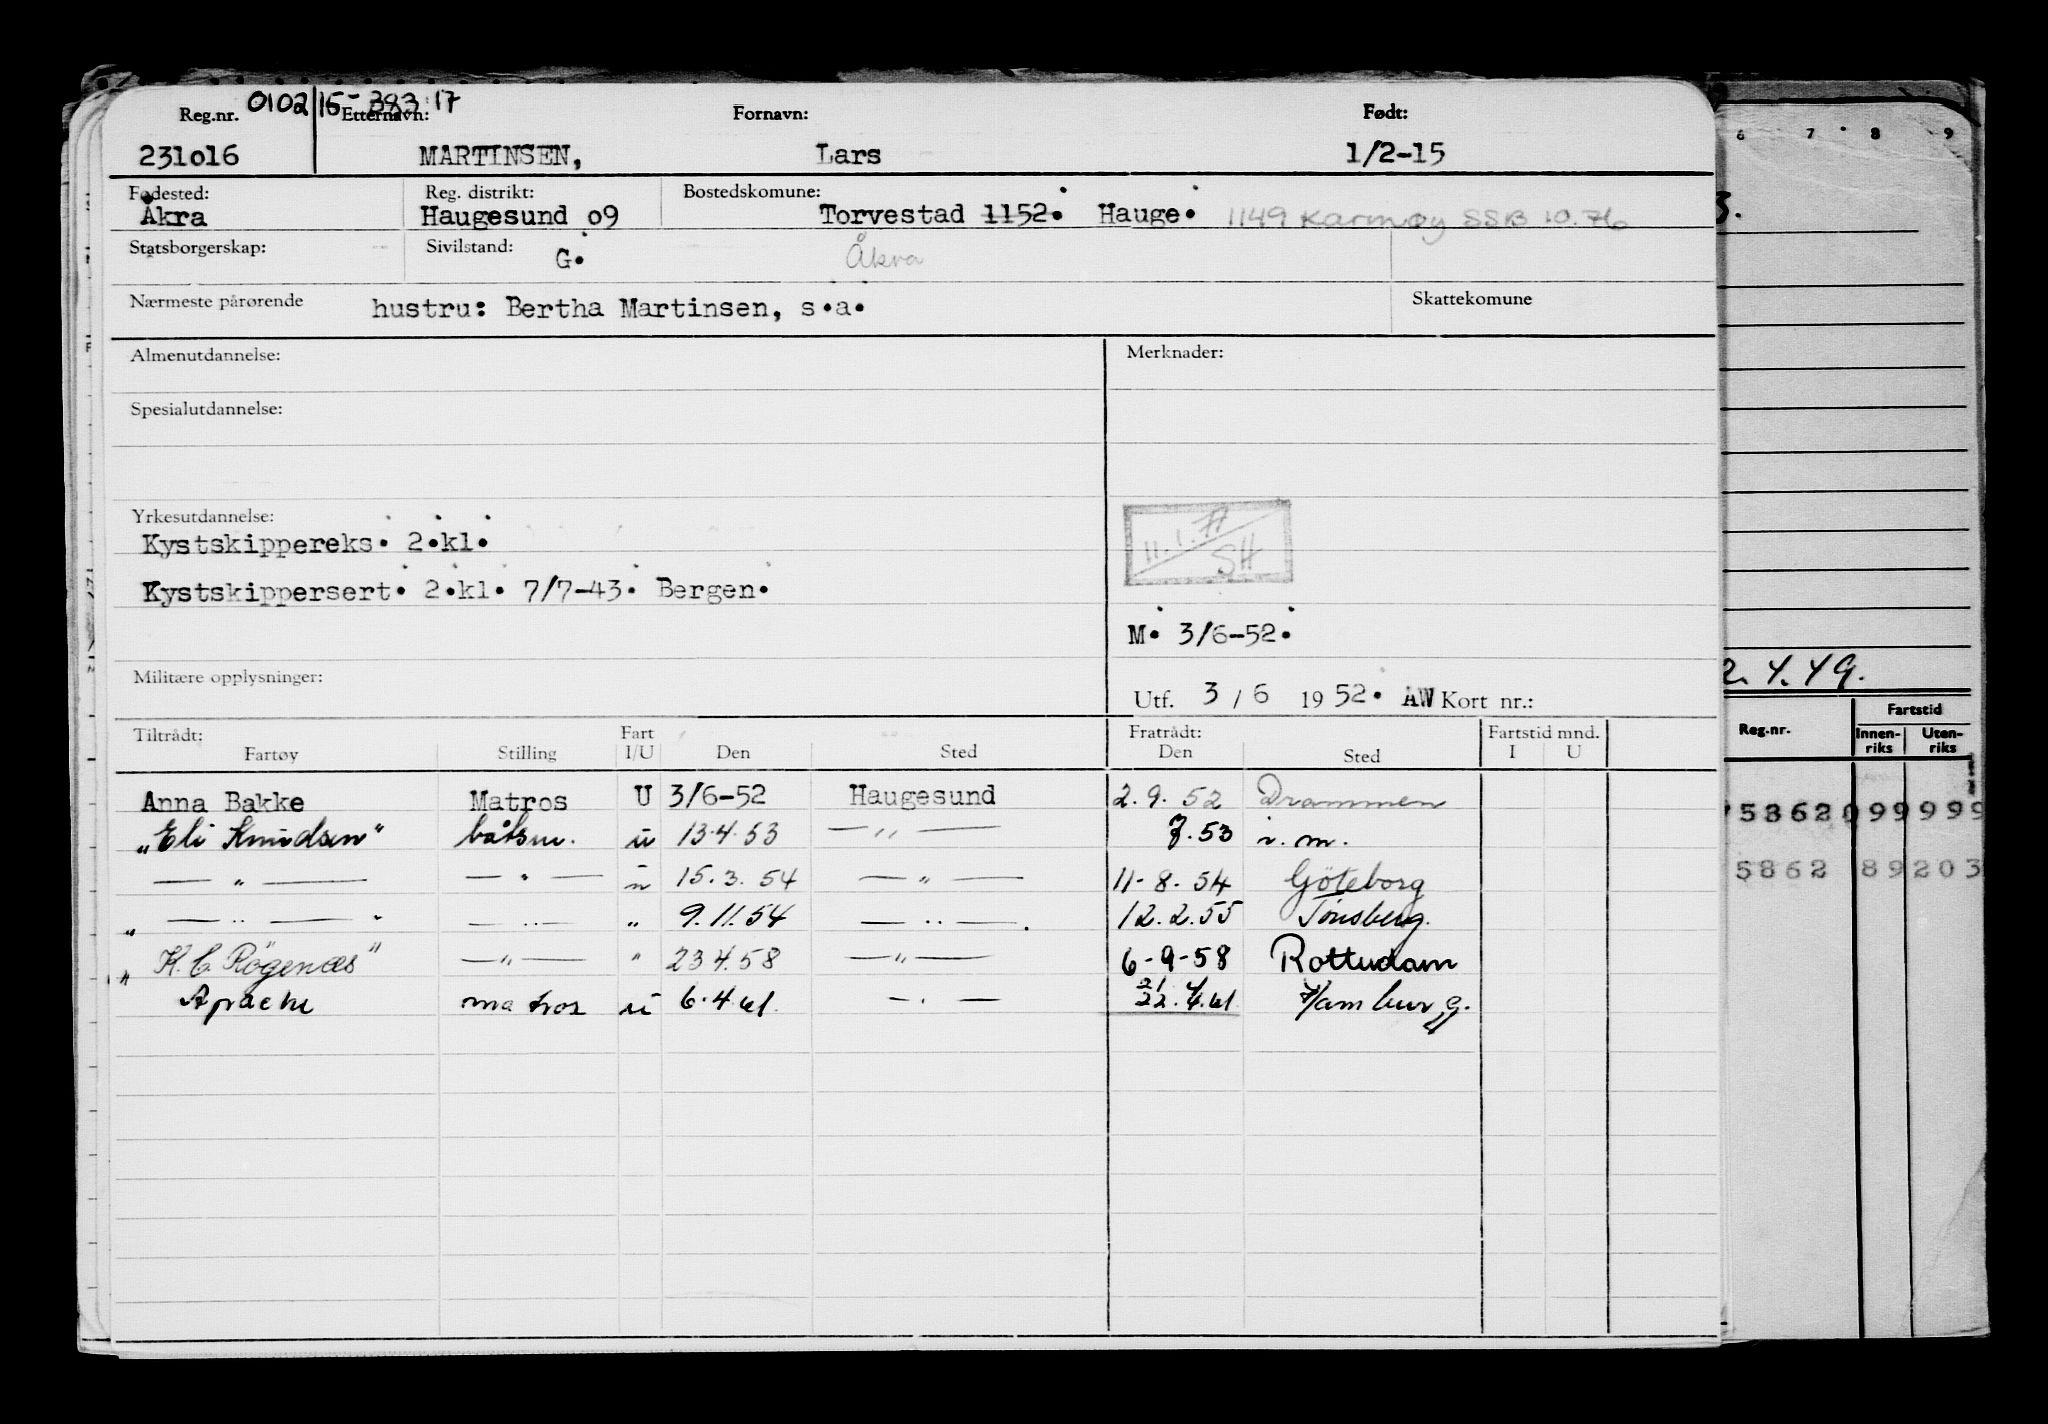 010215-383 17
Reg.nr. Etternavn: Fornavn: Født:
231016 MARTINSEN, Lars 1/2-15
Fødested: Reg. distrikt: Bostedskomune:
Åkra Haugesund 09 Torvestad 1152. Hauge. 1149 Karmøy SSB 10.76
Statsborgerskap: Sivilstand: G. Åkra
Nærmeste pårørende hustru: Bertha Martinsen, s.a. Skattekomune
Almenutdannelse: Merknader:
Spesialutdannelse:
Yrkesutdannelse:
Kystskippereks. 2.kl. 11.1.77 SH
Kystskippersert. 2.kl. 7/7-43. Bergen.
M. 3/6-52.
Militære opplysninger: Utf. 3 / 6 1952. AW Kort nr.:
Tiltrådt: Fart Fratrådt: Fartstid mnd.
Fartøy Stilling I/U Den Sted Den Sted I U
Anna Bakke Matros U 3/6-52 Haugesund 2.9.52 Drammen
"Eli Knudsen" båtsm. u 13.4.53 — " — 7.53 i.m.
— " — — " — u 15.3.54 — " — 11-8.54 Göteborg
" — " — " — " — " 9.11.54 — " — . 12.2.55 Tønsberg.
" K.C. Rögenæs" — " — " 23 4.58 — " — 6-9-58 Rotterdam
Apache matros u 6.4.61. — " — 21 22.4.61 Hamburg.
6 7 8 9
3.
2.4.49.
Reg.nr. Fartstid
Innen-riks Uten-riks
758620999999
586289203